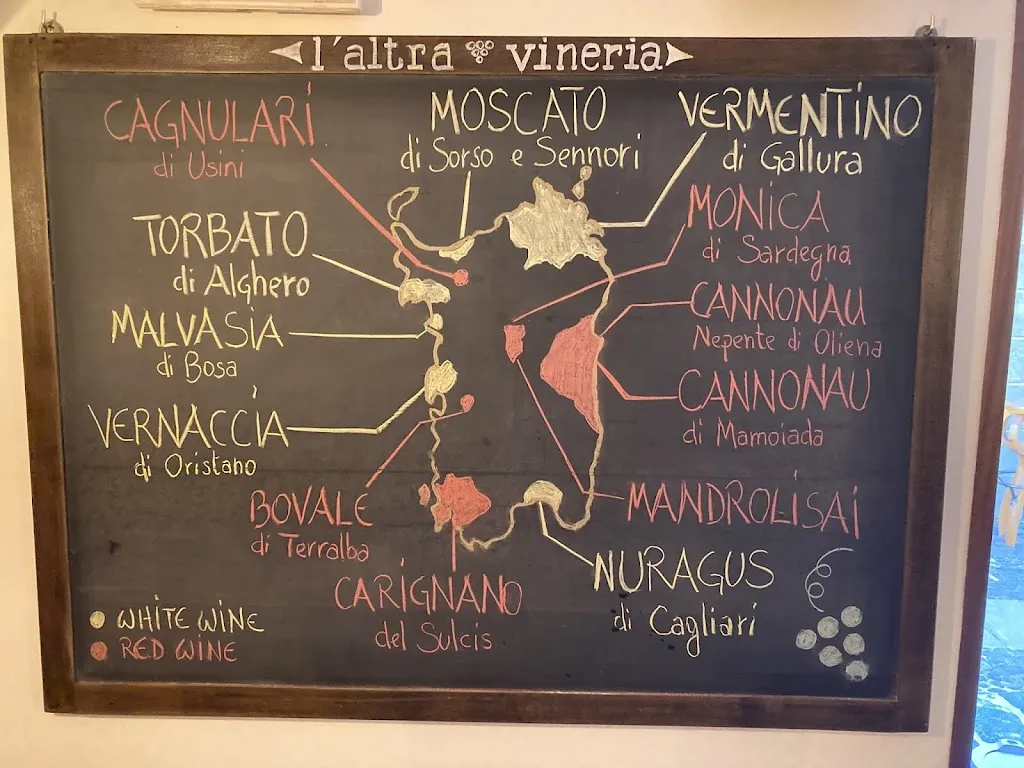 l'altra vineria
CAGNULARI
di Usini
MOSCATO
di Sorso e Sennori
VERMENTINO
di Gallura
MONICA
di Sardegna
TORBATO
di Alghero
CANNONAU
Nepente di Oliena
MALVASIA
di Bosa
CANNONAU
di Mamoiada
VERNACCIA
di Oristano
BOVALE
di Terralba
MANDROLISAI
CARIGNANO
del Sulcis
NURAGUS
di Cagliari
WHITE WINE
RED WINE